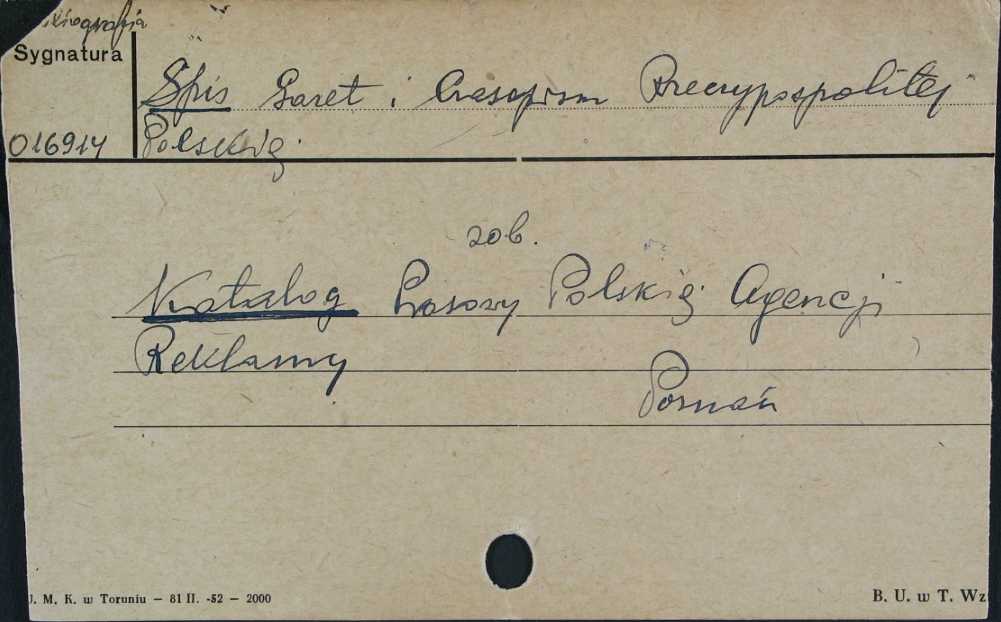 Bibliografia
Sygnatura
Spis Gazet i Czasopism Rzeczypospolitej
016914 Polskiej.
zob.
Katalog Prasowy Polskiej Agencji
Reklamy
Poznań
U. M. K. w Toruniu — 81 II. -52 — 2000
B. U. w T. Wz